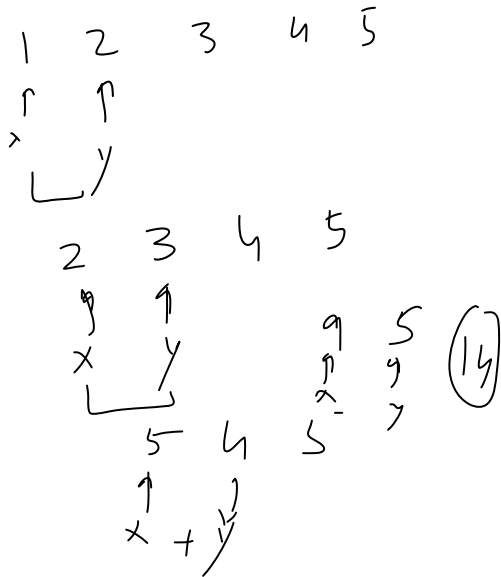 1 2 3 4 5
x y
2 3 4 5
x y
9 5 14
x y
5 4 5
x + y